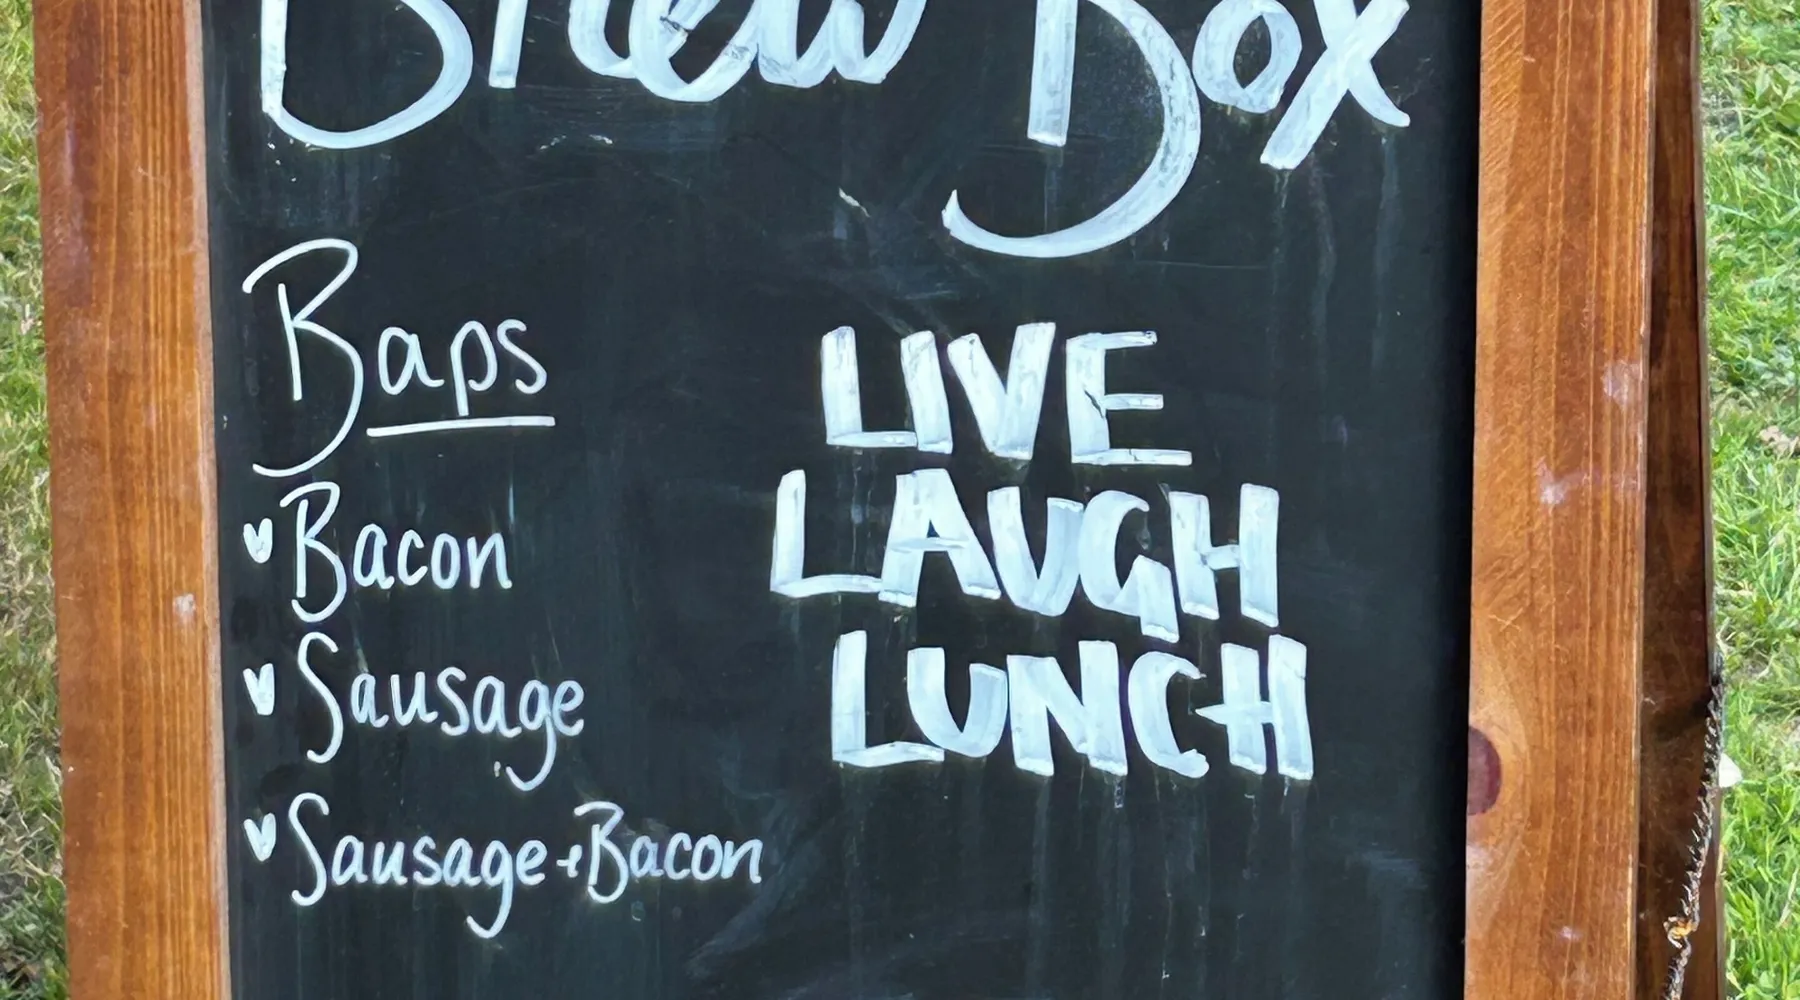 Brew Box
Baps
Bacon
Sausage
Sausage + Bacon
LIVE
LAUGH
LUNCH